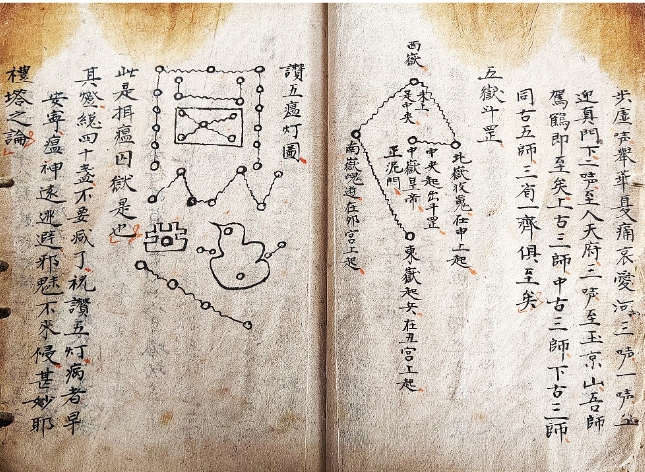 步虛声舉華夏痛哀愛河三声一声至
迎真門下二声至入天府三声至玉京山吾師
駕鶴即至矣上古三師中古三師下古三師
同古五師三省一齊俱至矣
五嶽斗罡
西嶽
是中央
北嶽收冤在中上起
中央起出斗罡
中嶽皇帝
正死門
東嶽起矢在丑宮上起
南嶽
在卯宮上起
讚五瘟灯圖
此是拑瘟囚獄是也
耳灯総四十盞不要減了祝讚五灯病者早
安寧瘟神遠逃避邪魅不來侵甚妙耶
樓塔之論